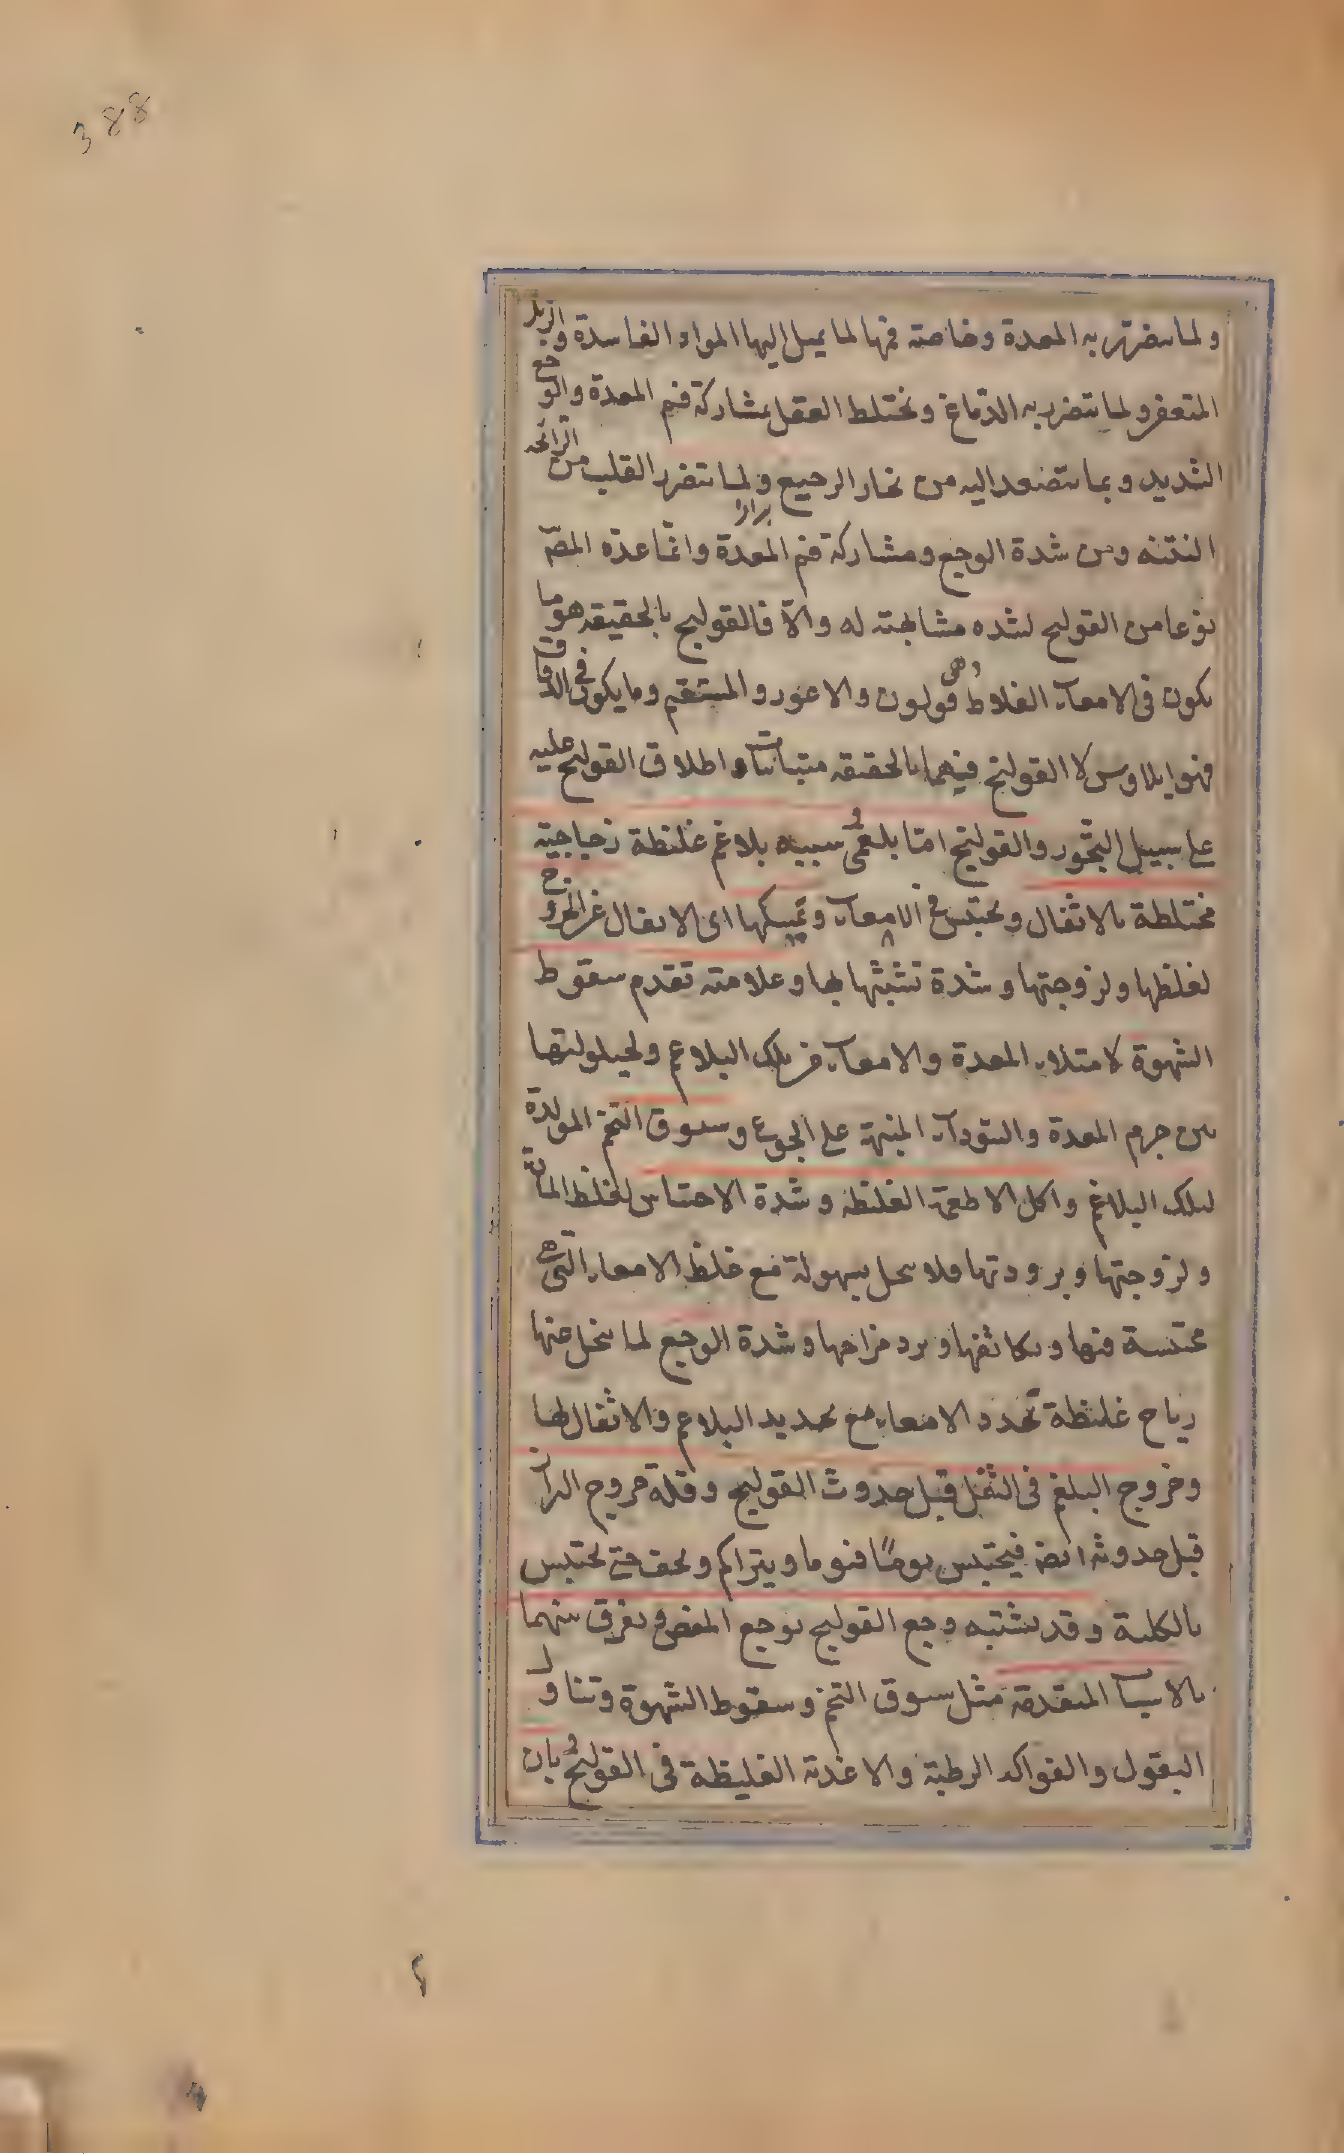 388
ولما يتضرر به المعدة وخاصة فمها لما يميل اليها المواد الفاسدة والزبل
المتعفن ولما يتضرر به الدماغ ويختلط العقل بمشاركة فم المعدة والوجع
الشديد وبما يتصعد اليه من بخار الرجيع ولما يتضرر القلب من الرائحة
النتنة ومن شدة الوجع ومشاركة فم المعدة وانما عده المص
نوعا من القولنج لشده مشابهته له والا فالقولنج بالحقيقه هو ما
يكون فى الامعاء الغلاظ وهى قولون والاعور والمستقيم وما يكون فى الدقاق
فهو ايلاوس لا القولنج فهما بالحقيقه متباينان واطلاق القولنج عليه
على سبيل التجوز والقولنج اما بلغمى وسببه بلاغم غليظة زجاجية
مختلطة بالاثقال ويحتبس فى الامعاء وتمسكها اى الاثقال عن الخروج
لغلظها ولزوجتها وشدة تشبثها بها وعلامته تقدم سقوط
الشهوة لامتلاء المعدة والامعاء من تلك البلاغم ولحيلولتها
بين جرم المعدة والسوداء المنبهة على الجوع وسبوق التخم المولدة
لتلك البلاغم واكل الاطعمة الغليظة وشدة الاحتباس لغلظ المادة
ولزوجتها وبرودتها فلا يتحلل بسهولة مع غلظ الامعاء التى هى
محتبسة فيها وتكاثفها وبرد مزاجها وشدة الوجع لما ينحل عنها
رياح غليظة تمدد الامعاء مع تمديد البلاغم والاثقال لها
وخروج البلغم فى الثفل قبل حدوث القولنج وقلة خروج البراز
قبل حدوثه ايضا فيحتبس يوما فيوما ويتراكم ويجف حتى يحتبس
بالكلية وقد يشتبه وجع القولنج بوجع المغص ويفرق بينهما
بالاسباب المتقدمة مثل سبوق التخم وسقوط الشهوة وتناول
البقول والفواكه الرطبة والاغذية الغليظة فى القولنج وبان